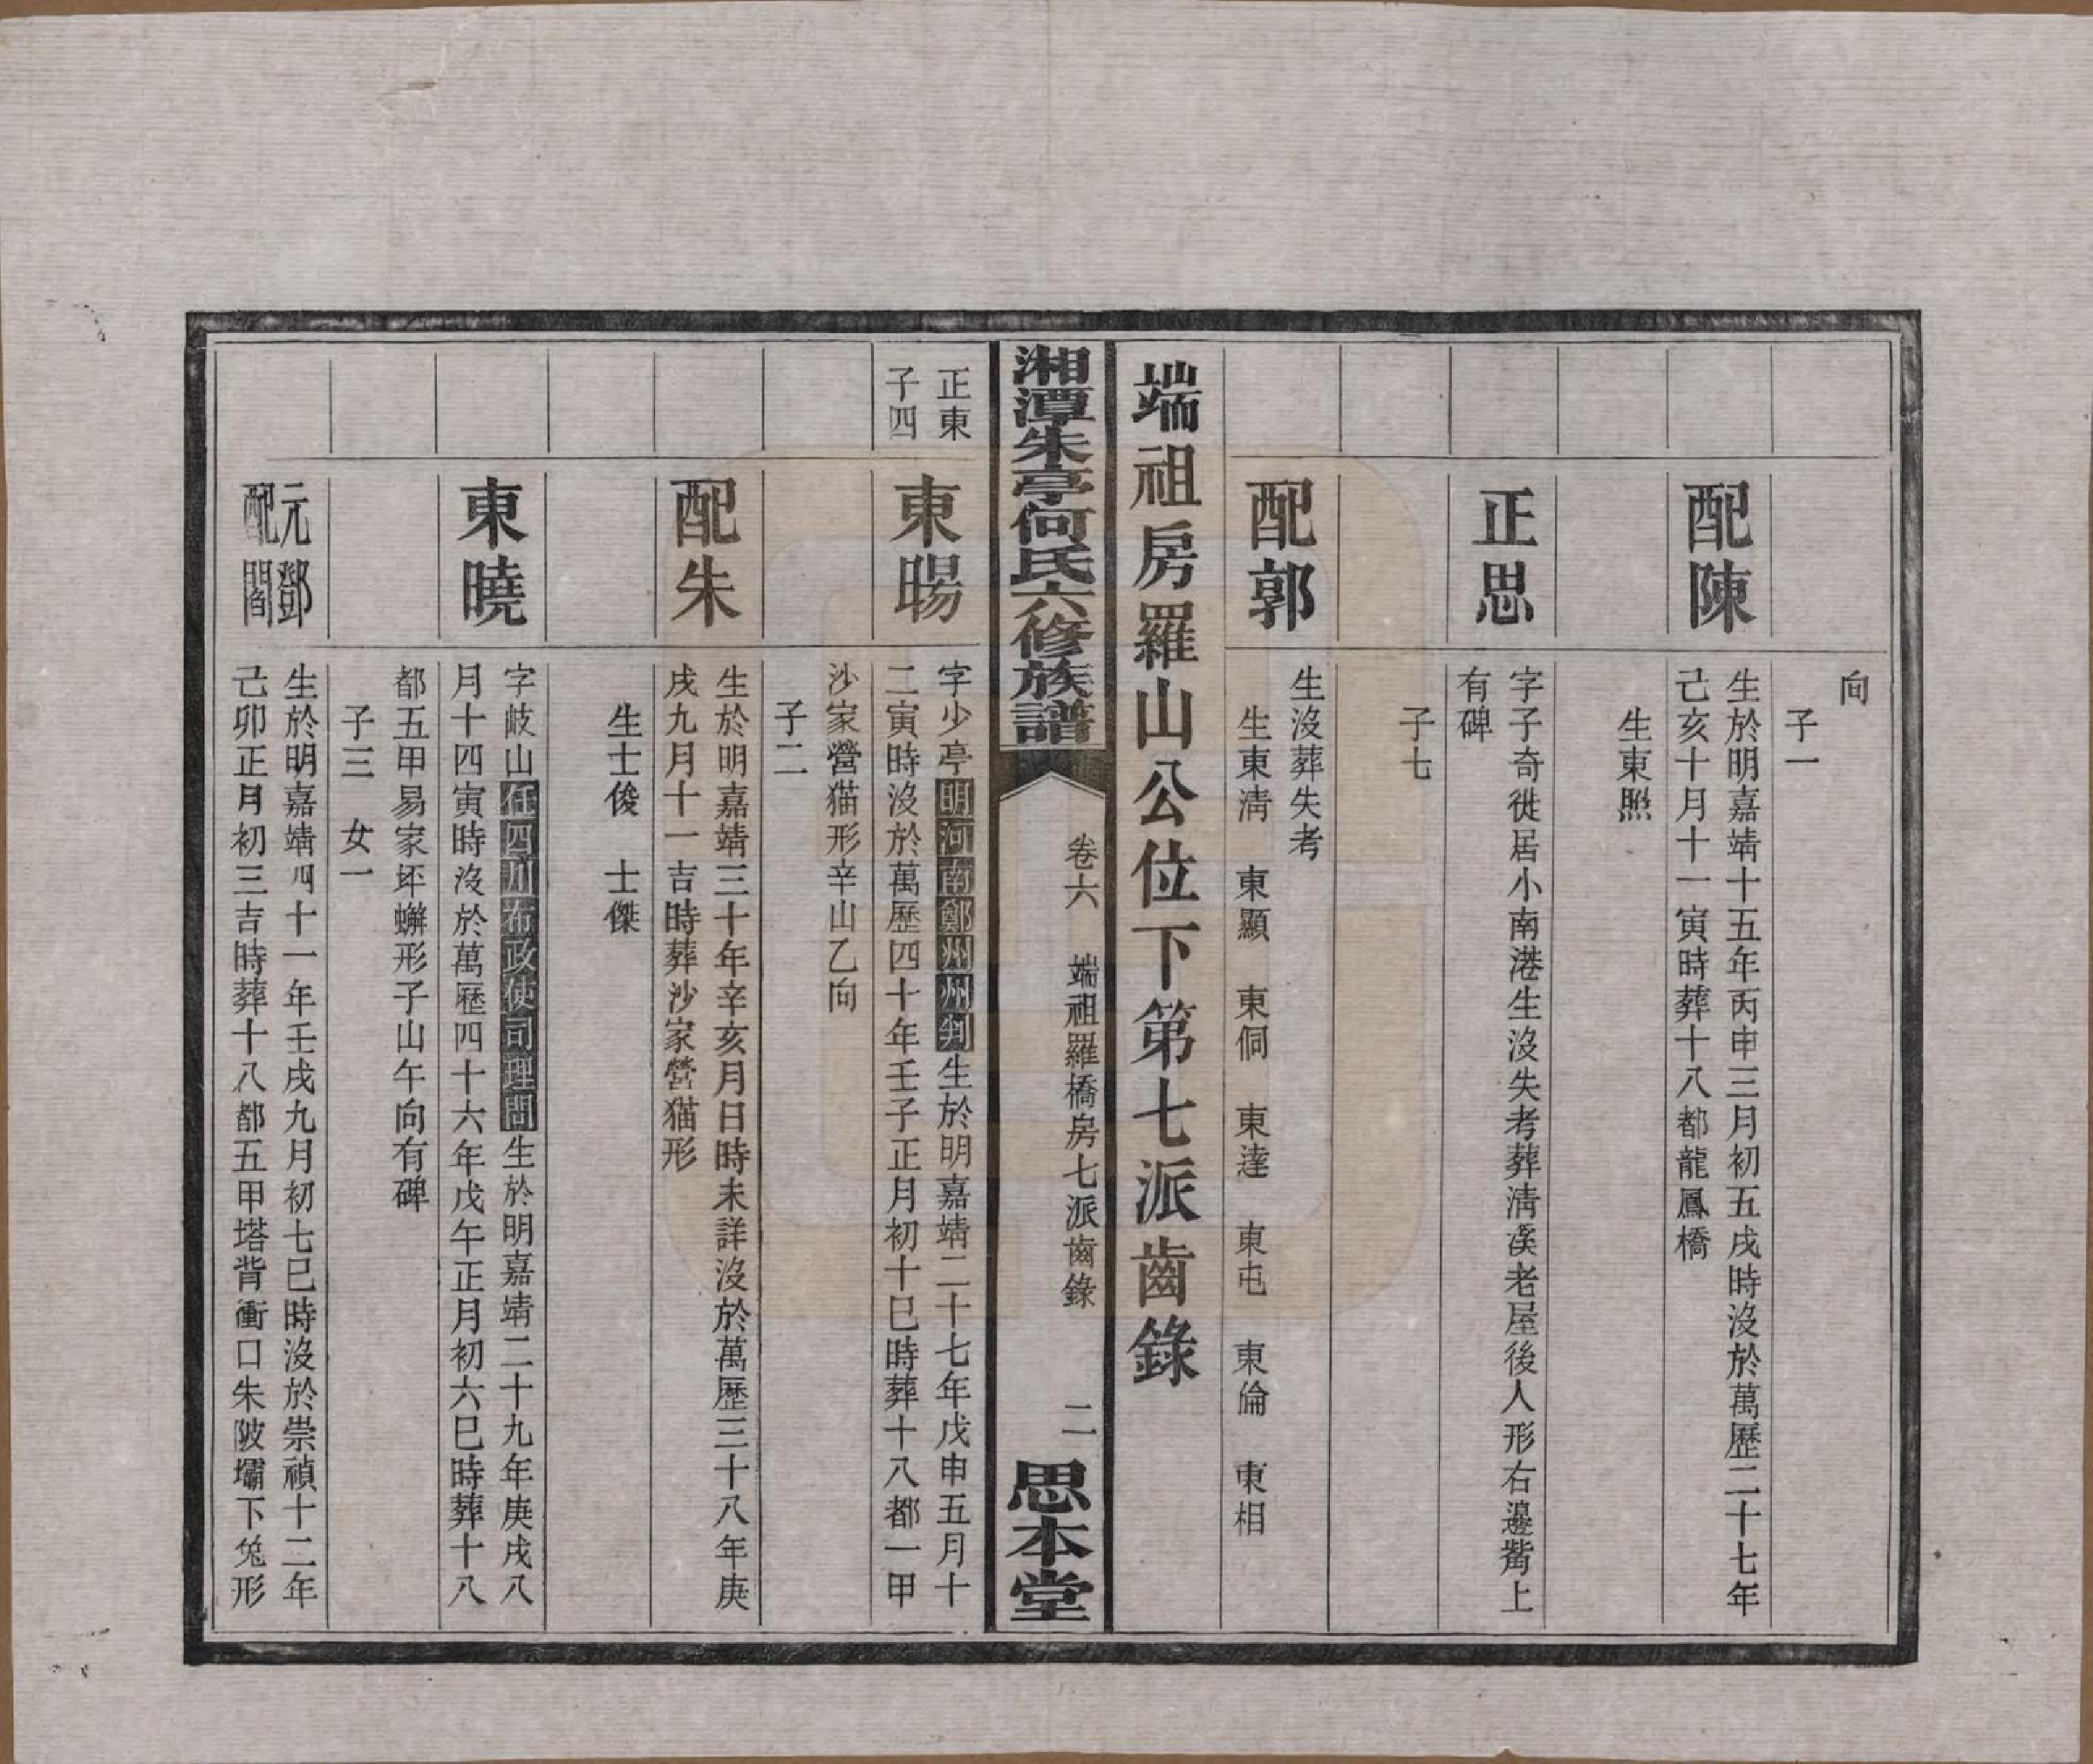 向
子一
配陳
生於明嘉靖十五年丙申三月初五戌時沒於萬歷二十七年
己亥十月十一寅時葬十八都龍鳳橋
生東照
正思
字子奇徙居小南港生沒失考葬淸溪老屋後人形右邊觜上
有碑
子七
配郭
生沒葬失考
生東淸 東顯 東侗 東達 東屯 東倫 東相
端祖房羅山公位下第七派齒錄
湘潭朱亭何氏六修族譜
卷六 端祖羅橋房七派齒錄 二
思本堂
正東
子四
東暘
字少亭明河南鄭州州判生於明嘉靖二十七年戊申五月十
二寅時沒於萬歷四十年壬子正月初十巳時葬十八都一甲
沙家營猫形辛山乙向
子二
配朱
生於明嘉靖三十年辛亥月日時未詳沒於萬歷三十八年庚
戌九月十一吉時葬沙家營猫形
生士俊 士傑
東曉
字岐山任四川布政使司理問生於明嘉靖二十九年庚戌八
月十四寅時沒於萬歷四十六年戊午正月初六巳時葬十八
都五甲易家坪蠏形子山午向有碑
子三 女一
元鄧
配閻
生於明嘉靖四十一年壬戌九月初七巳時沒於崇禎十二年
己卯正月初三吉時葬十八都五甲塔背衝口朱陂壩下兔形